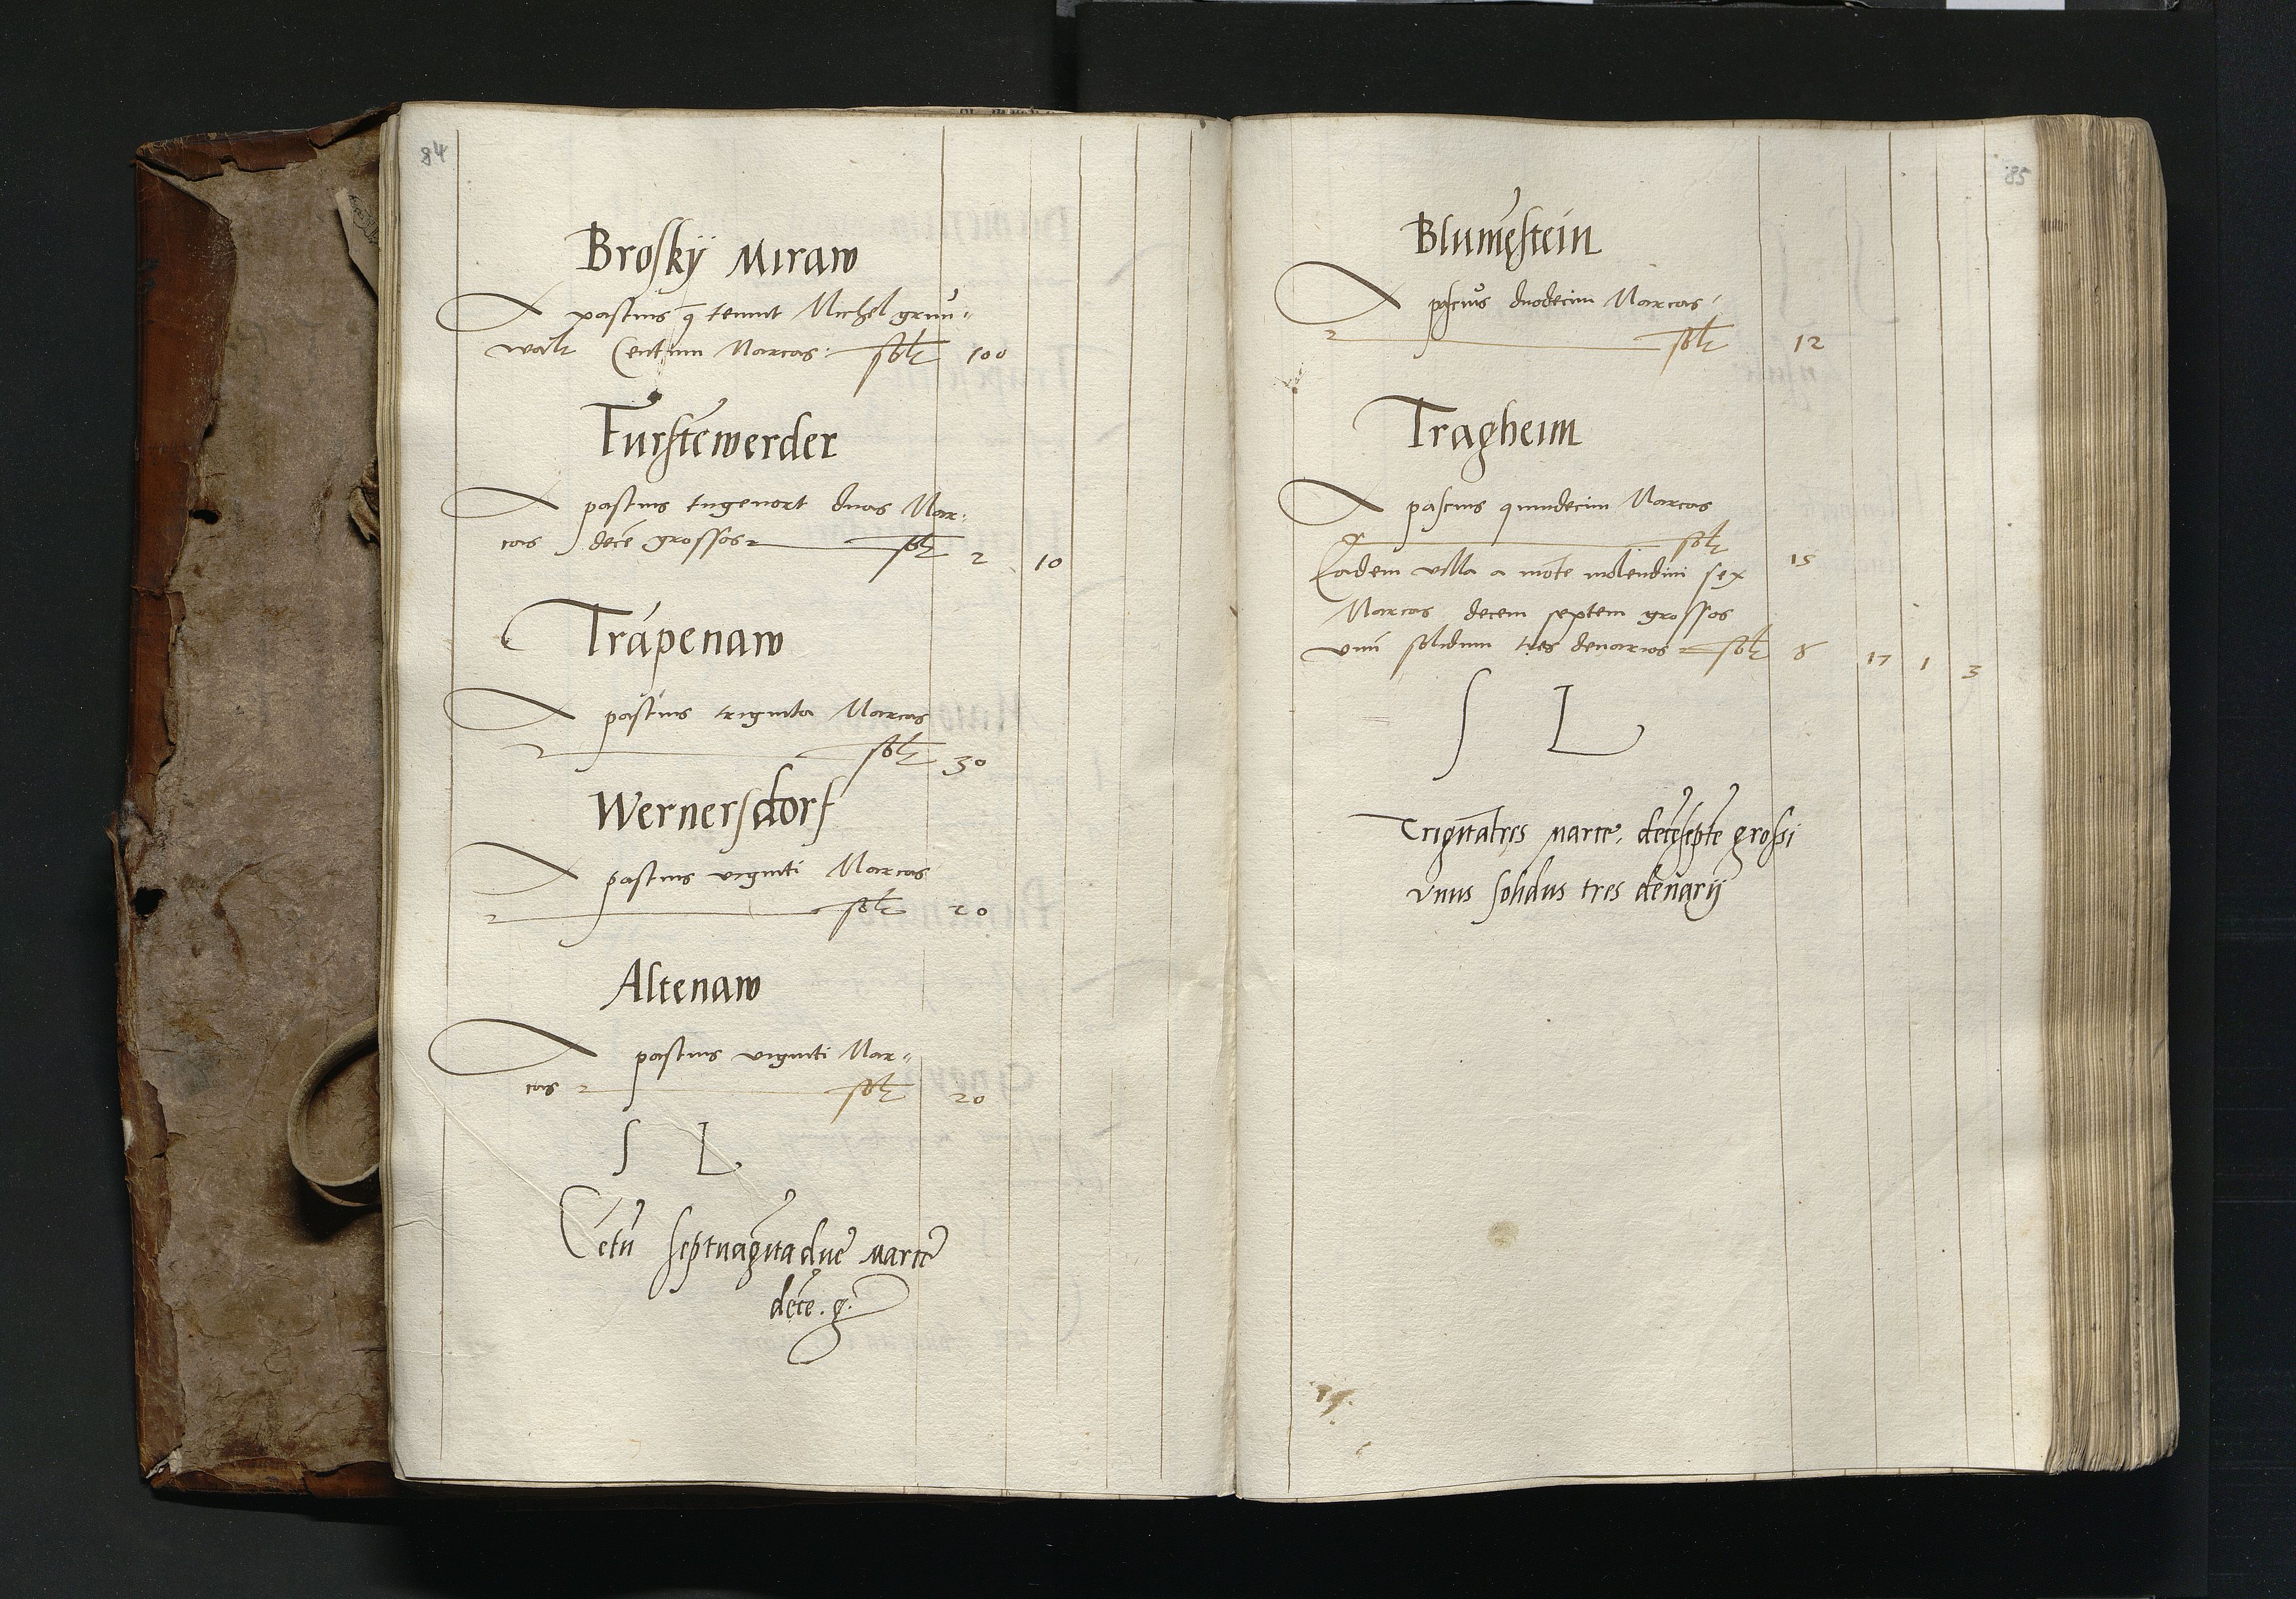 84
Broskÿ Miraw
A pascuis q tenuit Michel grun-
walt Centum Marcas: solt 100
Furstēwerder
A pascuis tngenort duas Mar-
cas decē grossos solt 2 10
Trapenaw
A pascuis triginta Marcas
solt 30
Wernersdorf
A pascuis viginti Marcas
solt 20
Altenaw
A pascuis viginti Mar-
cas solt 20
S L
Cētū septuagītaduę marcę
decē. g.
85
Blumēstein
A pascuis duodecim Marcas
solt 12
Tragheim
A pascuis quindecim Marcas
solt 15
Eadem villa a mōte molendini sex
Marcas decem septem grossos
vnū solidum tres denarios solt 6 17 1 3
S L
Trigītatres marcę, decēseptē grossi
vnus solidus tres denarij